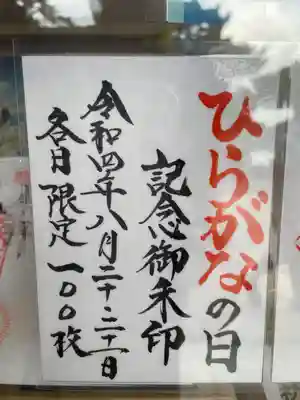 ひらがなの日
記念御朱印
令和四年八月二十・二十一日
各日限定一〇〇枚